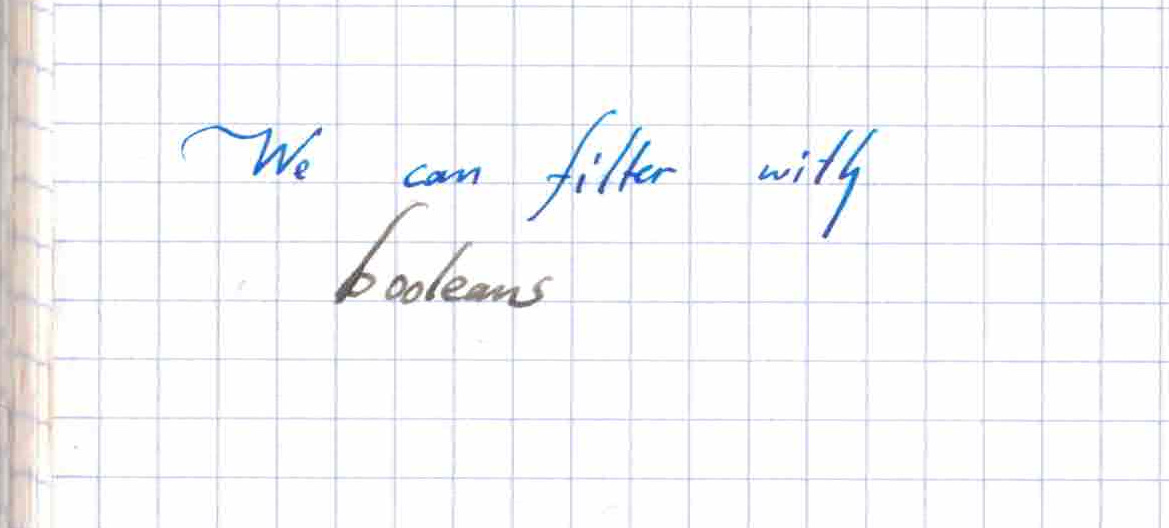 We can filter with
booleans